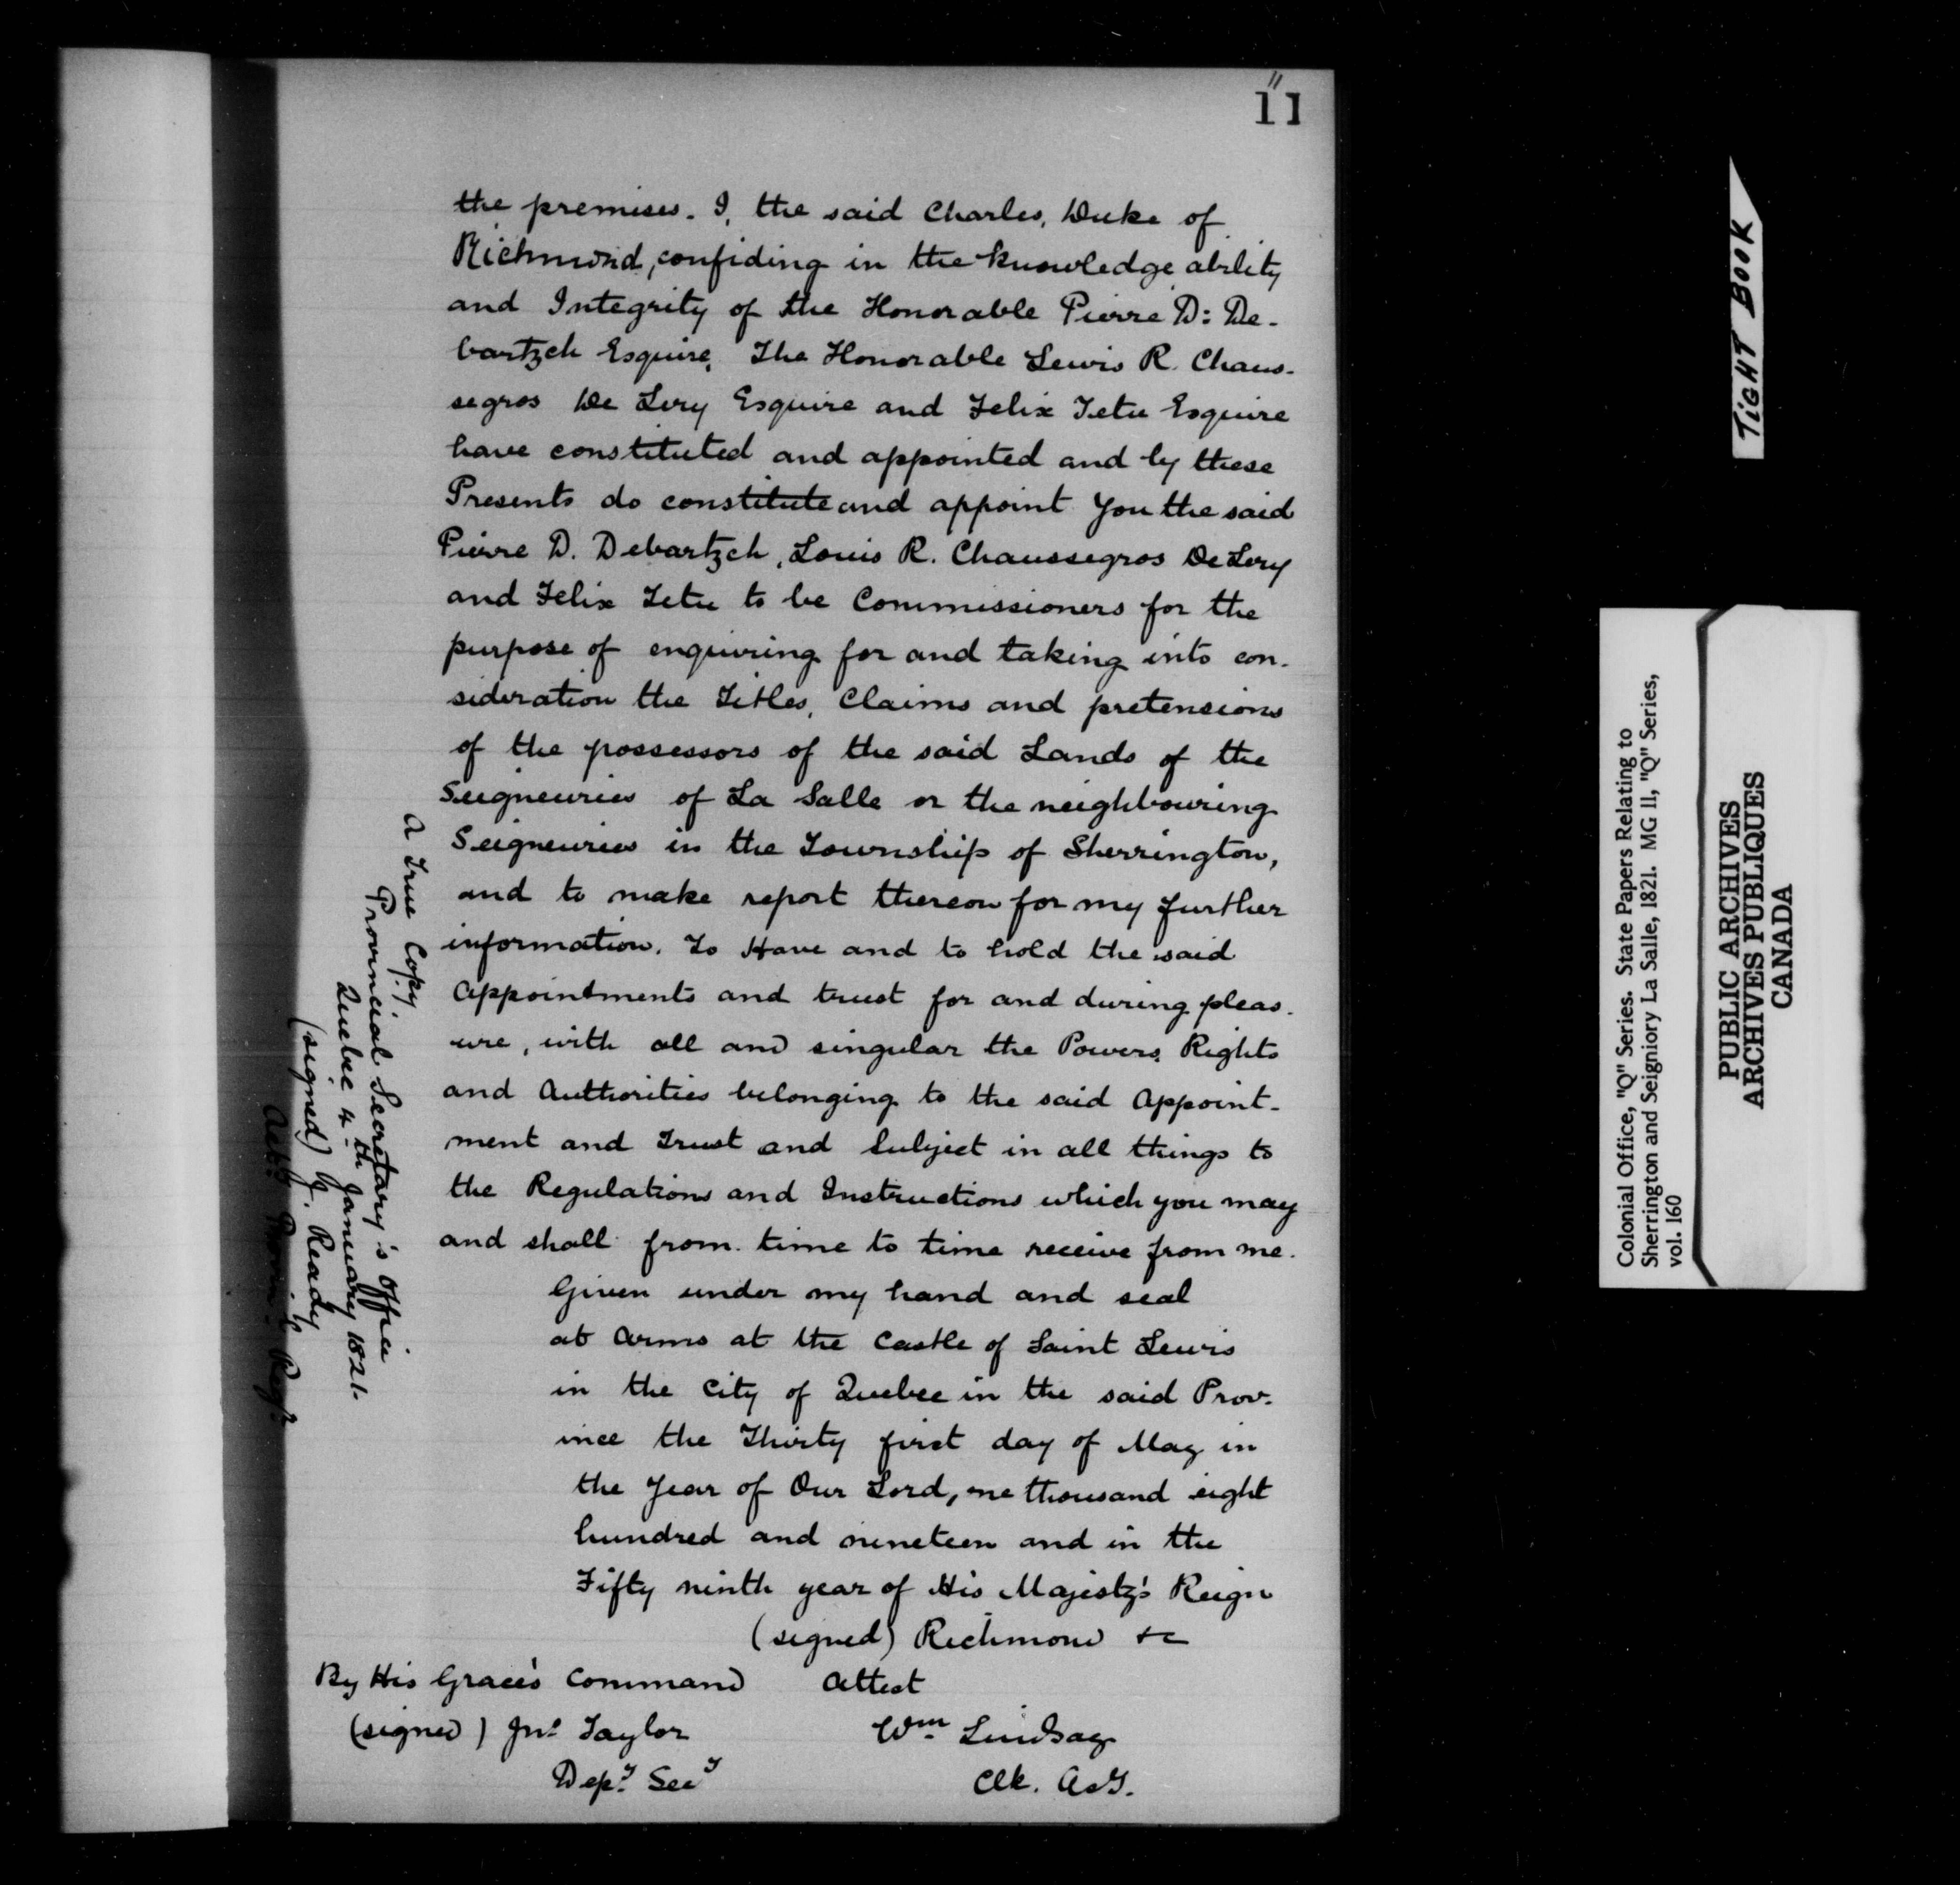 11
11
the premises. I, the said Charles, Duke of
Richmond, confiding in the knowledge ability
and Integrity of the Honorable Pierre D: De-
bartzch Esquire, The Honorable Lewis R. Chaus-
segros De Lery Esquire and Felix Tetu Esquire
have constituted and appointed and by these
Presents do constitute and appoint You the said
Pierre D. Debartzch, Louis R. Chaussegros De Lery
and Felix Tetu to be Commissioners for the
purpose of enquiring for and taking into con-
sideration the Titles, Claims and pretensions
of the possessors of the said Lands of the
Seigneuries of La Salle or the neighbouring
Seigneuries in the Township of Sherrington,
and to make report thereon for my further
information. To Have and to hold the said
Appointments and trust for and during pleas-
ure, with all and singular the Powers, Rights
and Authorities belonging to the said Appoint-
ment and Trust and Subject in all things to
the Regulations and Instructions which you may
and shall from time to time receive from me.
Given under my hand and seal
at Arms at the Castle of Saint Lewis
in the City of Quebec in the said Prov-
ince the Thirty first day of May in
the Year of Our Lord, one thousand eight
hundred and nineteen and in the
Fifty ninth year of His Majesty's Reign
(signed) Richmond &c
By His Grace's Command Attest
(signed) Jno. Taylor Wm Lindsay
Depy. Secy Clk. Asy.
A True Copy.
Provincial Secretary's Office
Quebec 4th January 1821.
(signed) J. Ready
Actg. Provinl. Regr.
TIGHT BOOK
Colonial Office, "Q" Series. State Papers Relating to
Sherrington and Seigniory La Salle, 1821. MG 11, "Q" Series,
vol. 160
PUBLIC ARCHIVES
ARCHIVES PUBLIQUES
CANADA